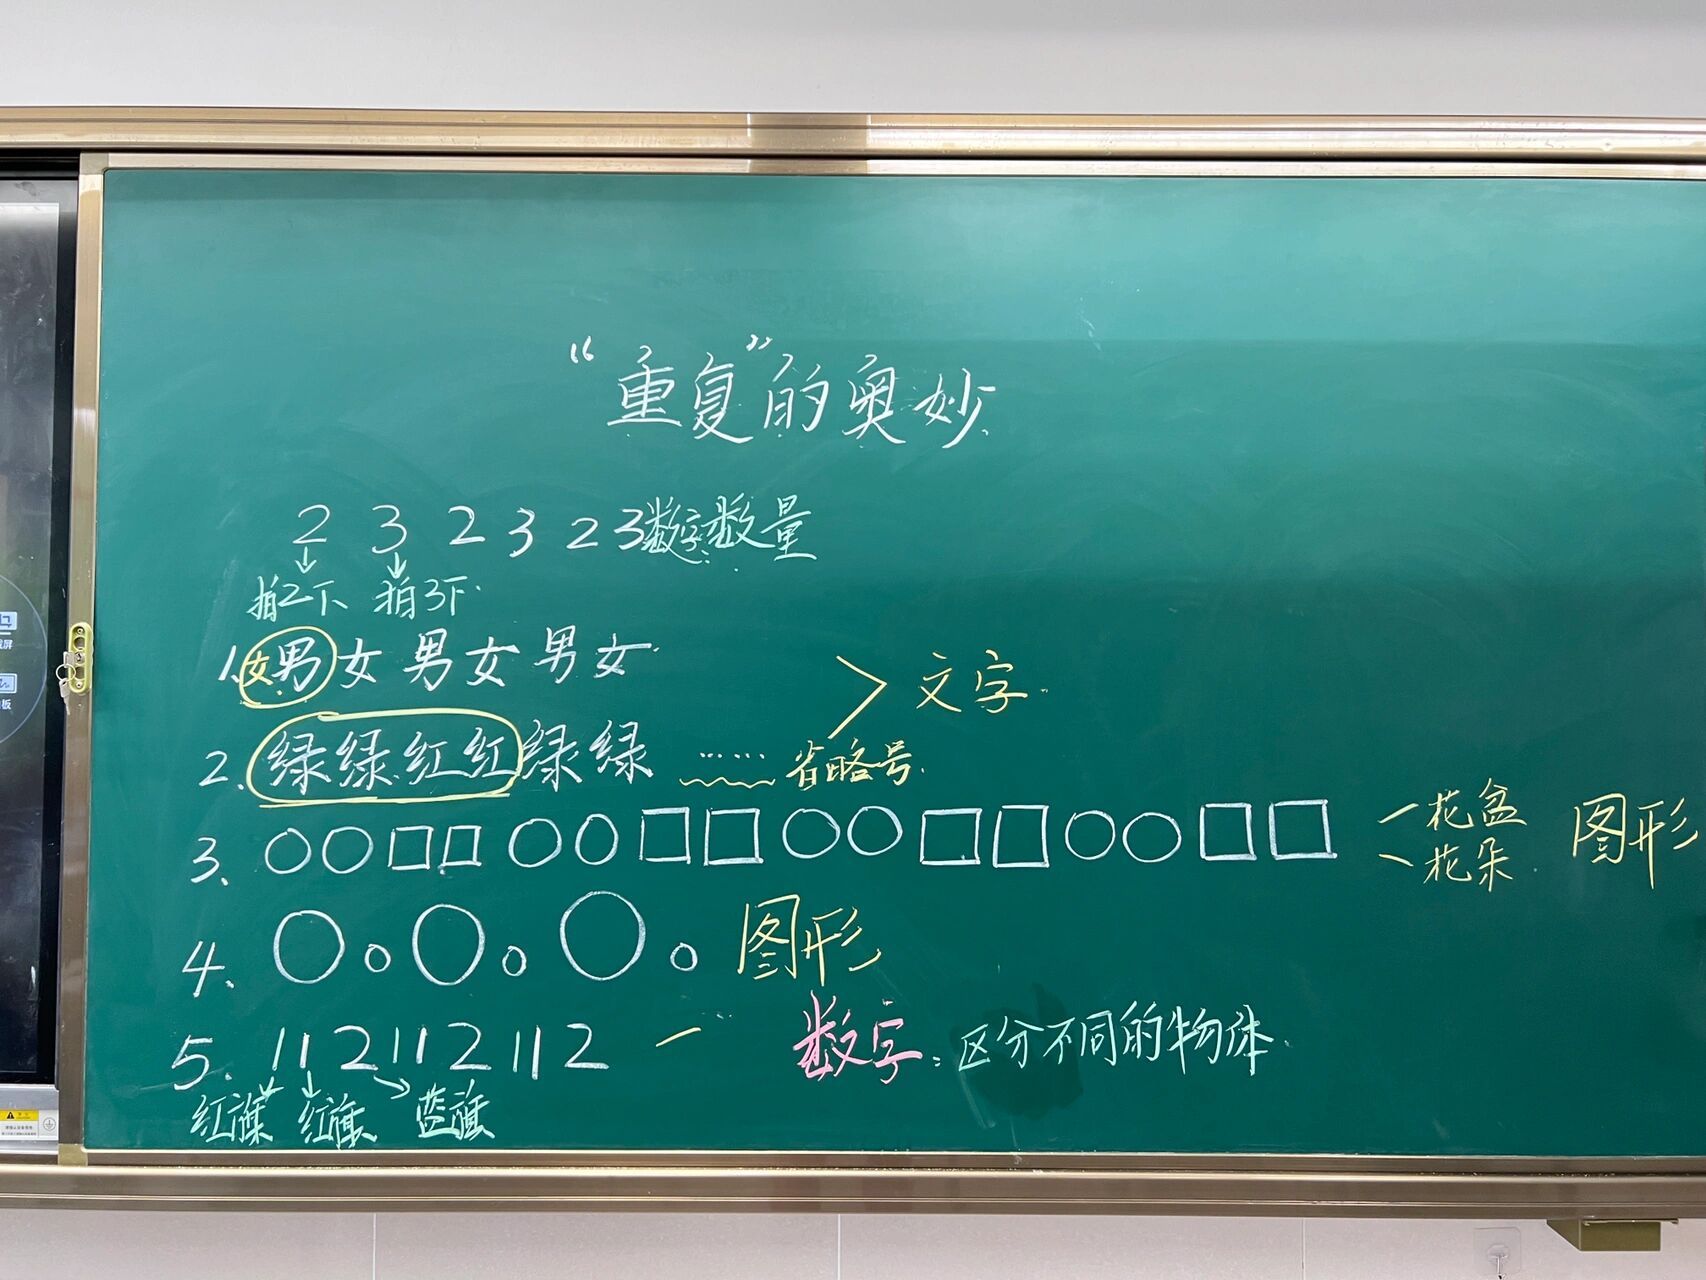 “重复”的奥妙
2 3 2 3 2 3 数字数量
拍2下 拍3下
1. 女男女男女男女
文字
2. 绿绿红红绿绿 …… 省略号
3. ○○□□○○□□○○□□○○□□ 花盆 图形
花朵
4. ○○○○○○ 图形
5. 112112112 数字：区分不同的物体
红旗 红旗 蓝旗